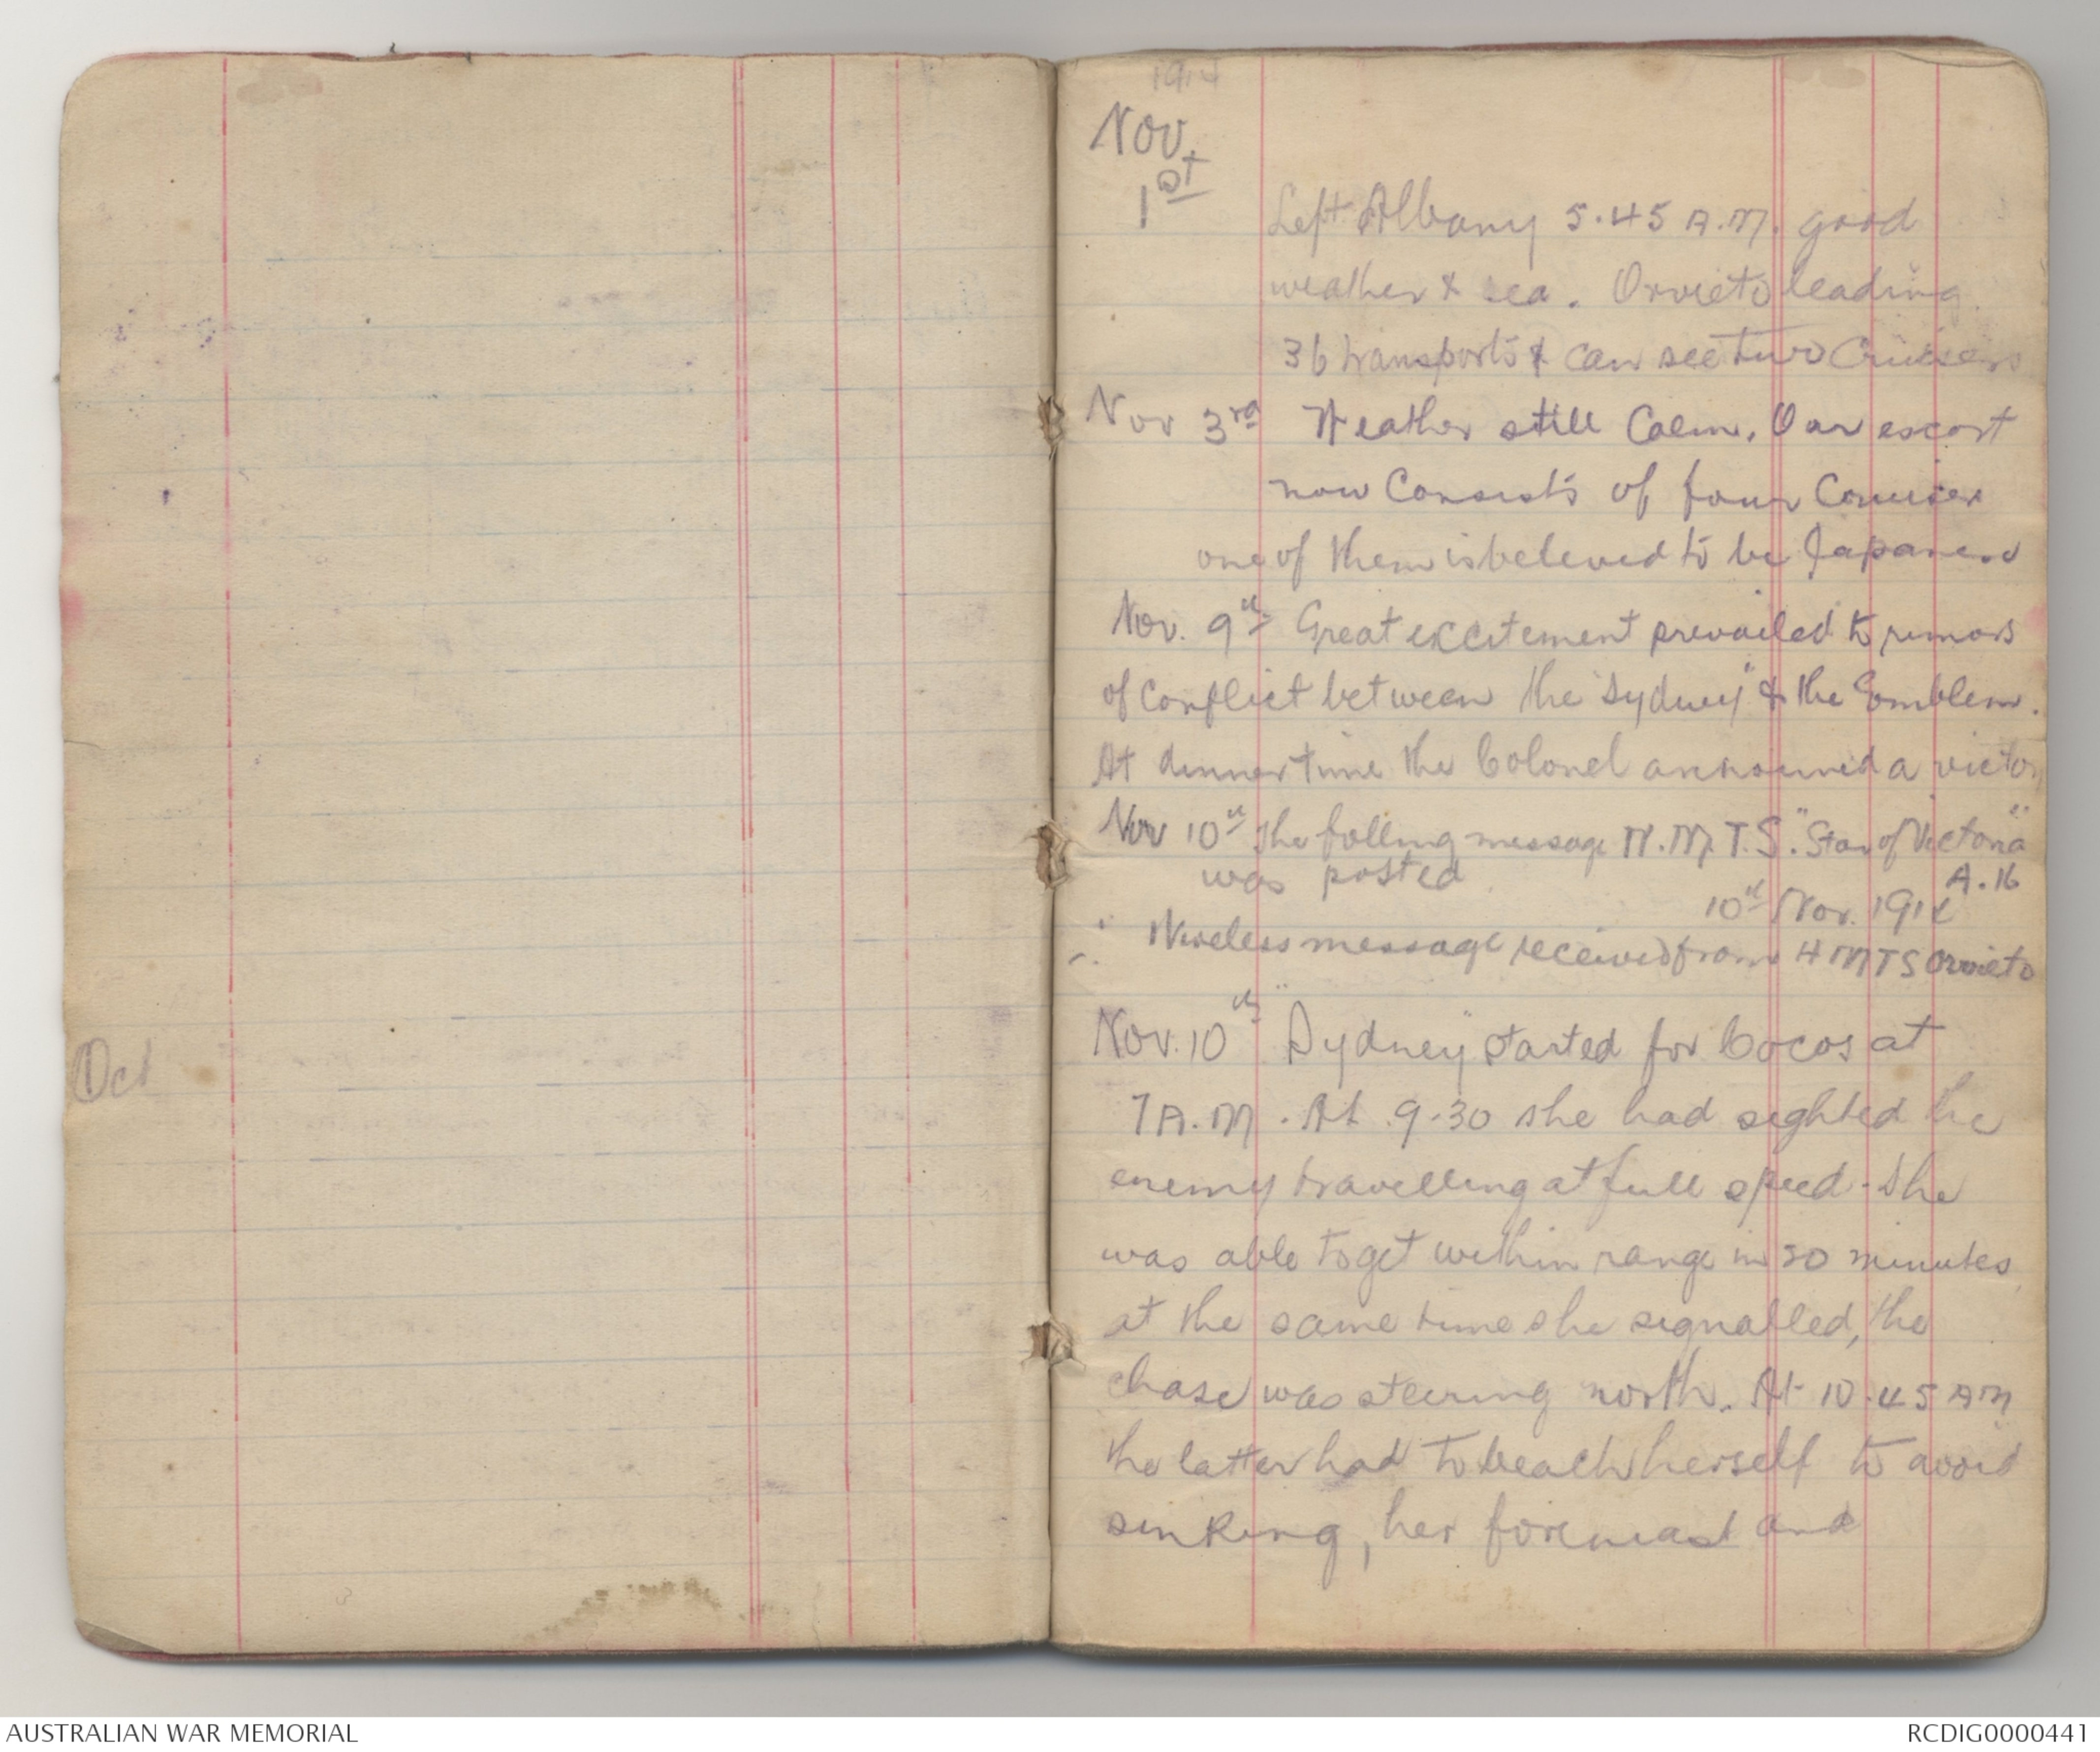 Oct
1914
Nov.
1st
Left Albany 5.45 A.M. good
weather & sea. Orvieto leading
36 transports & can see two Cruisers
Nov 3rd Weather still Calm. Our escort
now Consists of four Cruiser
one of them is beleived to be Japanese
Nov. 9th Great excitement prevailed to rumors
of Conflict between the "Sydney" & the Emblem.
At dinner time the Colonel announced a victory
Nov 10th The folling message H.M.T.S. "Star of Victoria"
was posted A.16
10th Nov. 1914
Wireless message received from HMTS Orvieto
Nov. 10th "Sydney" started for Cocos at
7 A.M. At 9.30 she had sighted the
enemy travelling at full speed. She
was able to get within range in 30 minutes
at the same time she signalled, the
chase was steering north. At 10.45 AM
the latter had to beach herself to avoid
sinking, her foremast and
AUSTRALIAN WAR MEMORIAL
RCDIG0000441